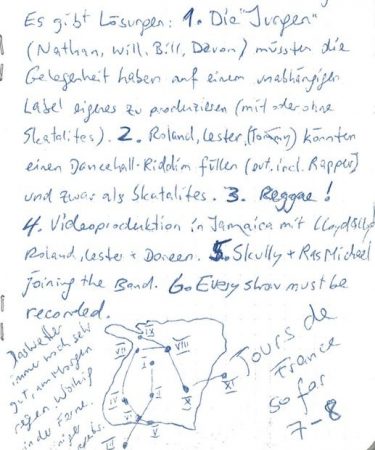 Es gibt Lösungen: 1. Die "Jungen"
(Nathan, Will, Bill, Devon) müssten die
Gelegenheit haben auf einem unabhängigen
Label eigenes zu produzieren (mit oder ohne
Skatalites). 2. Roland, Lester, (Tommy) könnten
einen Dancehall-Riddim füllen (evt. incl. Rapper)
und zwar als Skatalites. 3. Reggae!
4. Videoproduktion in Jamaica mit Lloyd
Roland, Lester + Doreen. 5. Skully + Ras Michael
joining the Band. 6. Every show must be
recorded.
Das Wetter
immer noch sehr
gut, am Morgen
regen. Wolkig
in der Ferne.
IX
VII
VIII
I
X
XI
V
II
Tours de
France
so far
7-8